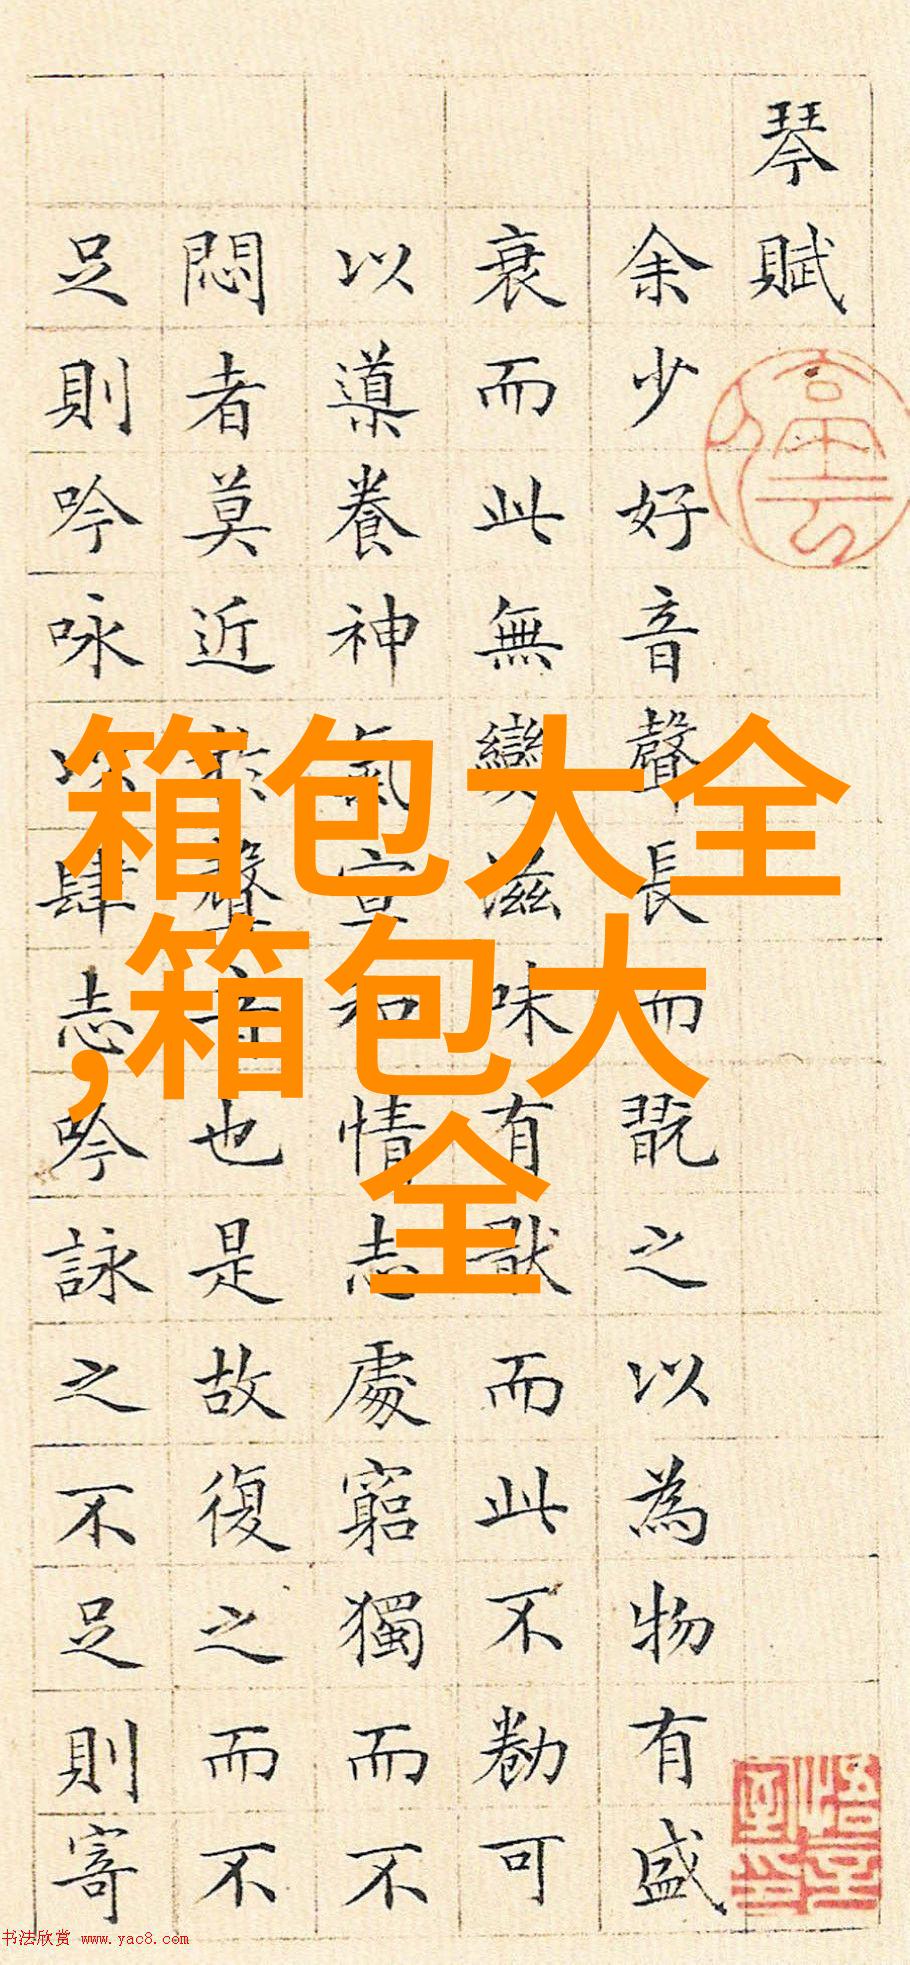 琴賦
余少好音聲長而翫之以為物有盛
衰而此無變滋味有猒而此不勌可
以導養神氣宣和情志處窮獨而不
悶者莫近於聲音也是故復之而不
足則吟咏以肆志吟詠之不足則寄
箱包大全
,箱包大
全
书法欣赏 www.yac8.com